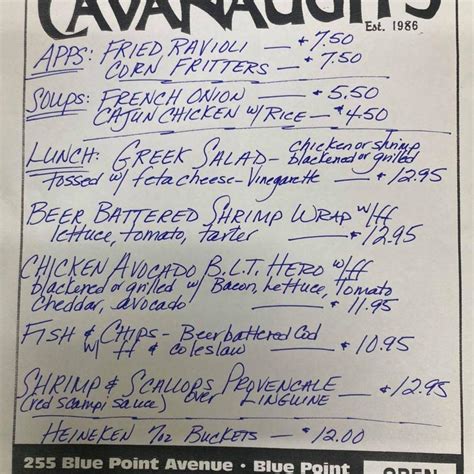 CAVANAUGH'S
Est. 1986
APPS: FRIED RAVIOLI — $7.50
CORN FRITTERS — $7.50
SOUPS: FRENCH ONION — $5.50
CAJUN CHICKEN w/ RICE — $4.50
LUNCH: GREEK SALAD - chicken or shrimp
blackened or grilled
Tossed w/ feta cheese - Vinegarette — $12.95
BEER BATTERED SHRIMP WRAP w/ff
lettuce, tomato, tarter — $12.95
CHICKEN AVOCADO B.L.T. HERO w/ff
blackered or grilled w/ Bacon, Lettuce, Tomato
Cheddar, avocado — $11.95
FISH & CHIPS - Beer battered Cod
w/ ff & coleslaw — $10.95
SHRIMP & SCALLOPS PROVENCALE — $12.95
(red scampi sauce) over LINGUINE
HEINEKEN 7oz BUCKETS — $12.00
255 Blue Point Avenue • Blue Point
OPEN